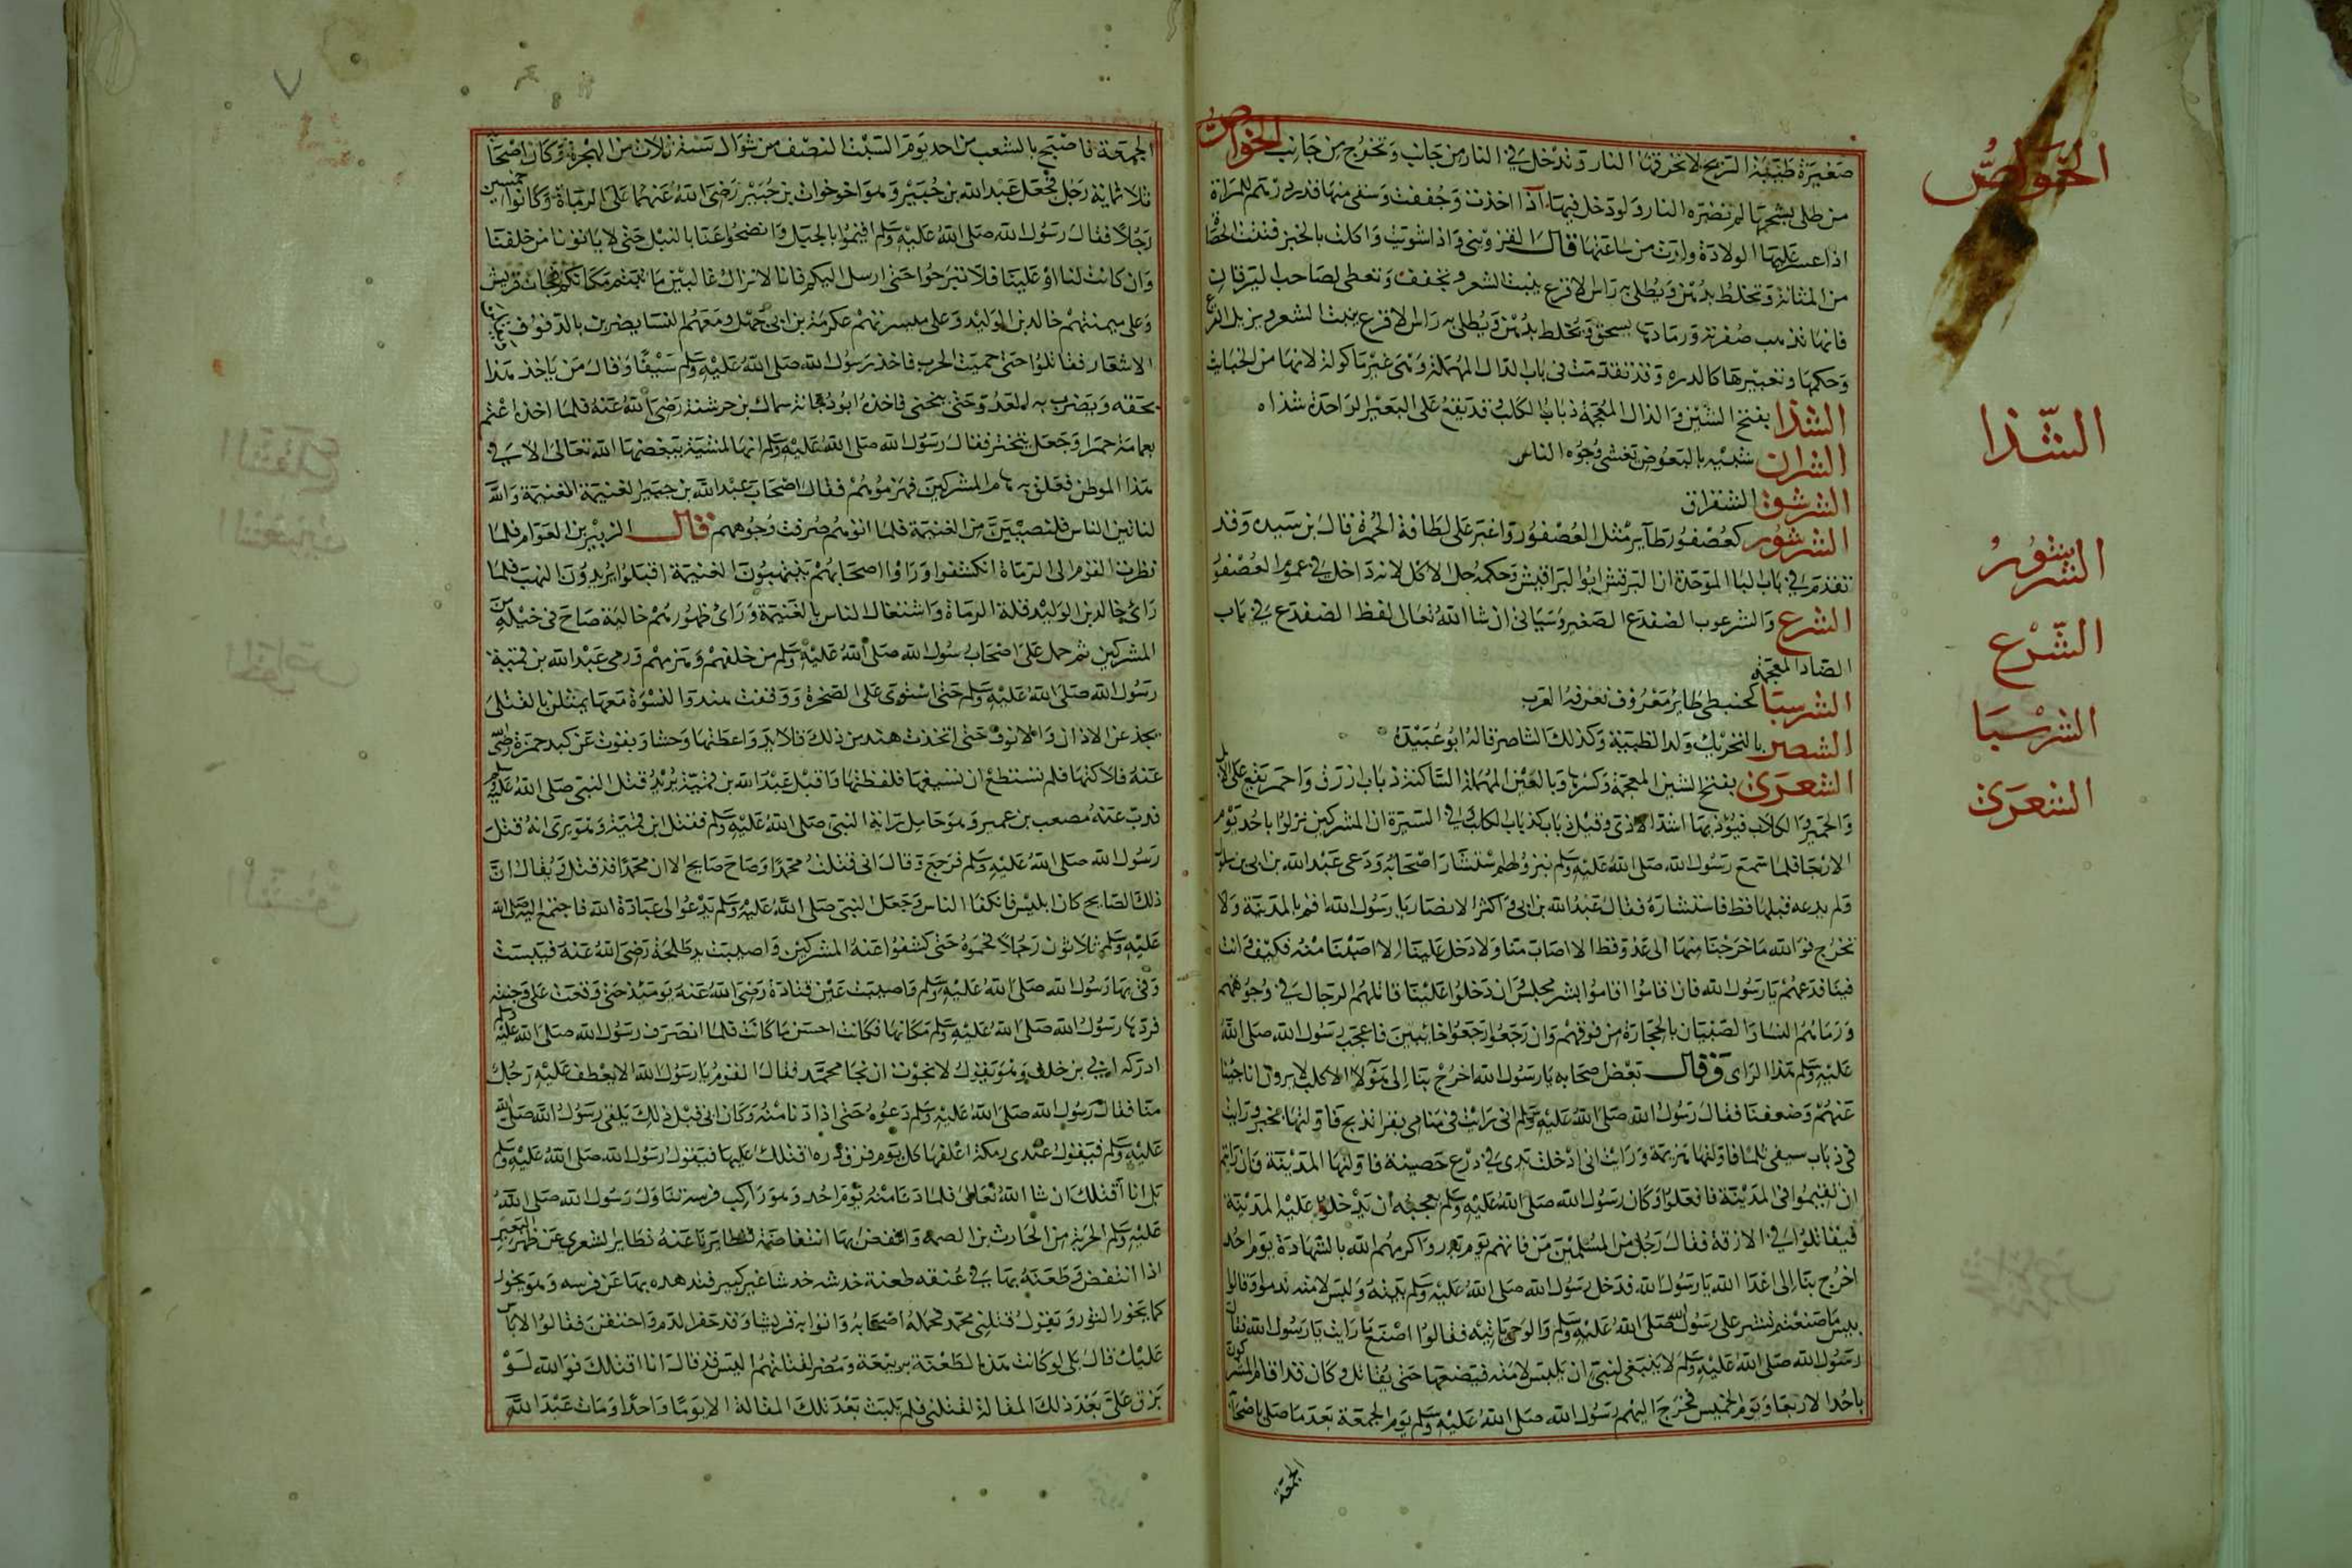 الخواص
صغيرة طيبة الريح لا تحرقها النار وتدخل في النار من جانب وتخرج من جانب الخواص
من طلى بشحمها لم تضره النار ولو دخل فيها اذا اخذت وجففت وسقى منها قدر درهم للمراة
اذا عسر عليها الولادة ولدت من ساعتها قال القزويني واذا شويت واكلت بالخبز فتت الحصاة
من المثانة وتخلط بدهن ويطلى به راس الاقرع ينبت الشعر وتجفف وتعطى لصاحب اليرقان
فانها تذهب صفرته ورمادها يسحق ويخلط بدهن ويطلى به راس الاقرع ينبت الشعر ويزيل القرع
وحكمها وتعبيرها كالدره وقد تقدمت في باب الدال المهملة وهي غير ماكولة لانها من الخبائث
الشذا بفتح الشين والذال المعجمة ذباب الكلب قد يقع على البعير الواحدة شذاه
الشذا
الشران شبيه بالبعوض تغشى وجوه الناس
الشرشق الشقراق
الشرشور كعصفور طاير مثل العصفور اغبر على لطافة الحمرة قال بن سيده وقد
الشرشور
تقدم في باب البا الموحدة ان البرقش ابو البراقيش وحكمه حل الاكل لانه داخل في عموم العصفو
الشرع والشرعوب الضفدع الصغير وسياتي ان شا الله تعالى لفظ الضفدع في باب
الشرع
الضاد المعجمة
الشرسبا كحنبطى طاير معروف تعرفه العرب
الشرسبا
الشصر بالتحريك ولد الظبية وكذلك الشاصر قاله ابو عبيدة
الشعرى بفتح الشين المعجمة وكسرها وبالعين المهملة الساكنة ذباب ازرق واحمر يقع على الابل
الشعرى
والحمير والكلاب فيؤذيها اشد الاذى وقيل ذباب كذباب الكلب وفي السيرة ان المشركين نزلوا باحد يوم
الاربعا فلما سمع رسول الله صلى الله عليه وسلم بنزولهم استشار اصحابه ودعى عبد الله بن ابي بن سلول
ولم يدعه قبلها قط فاستشاره فقال عبد الله بن ابي واكثر الانصار يا رسول الله اقم بالمدينة ولا
نخرج فوالله ما خرجنا منها الى عدو قط الا اصاب منا ولا دخل علينا الا اصبنا منه فكيف وانت
فينا فدعهم يا رسول الله فان قاموا اقاموا بشر مجلس وان دخلوا علينا قاتلهم الرجال في وجوههم
ورماهم النسا والصبيان بالحجارة من فوقهم وان رجعوا رجعوا خائبين فاعجب رسول الله صلى الله
عليه وسلم هذا الراى وقال بعض صحابه يا رسول الله اخرج بنا الى هؤلا الاكلب لا يرون انا جبنا
عنهم وضعفنا فقال رسول الله صلى الله عليه وسلم انى رايت في منامى بقرا تذبح فاولتها بخير ورايت
في ذباب سيفى ثلما فاولتها هزيمة ورايت انى ادخلت يدى في درع حصينة فاولتها المدينة فان رايتم
ان تقيموا في المدينة فافعلوا وكان رسول الله صلى الله عليه وسلم يعجبه ان يدخلوا عليه المدينة
فيقاتلوا في الازقة فقال رجل من المسلمين من فاتهم يوم بدر واكرمهم الله بالشهادة يوم احد
اخرج بنا الى اعدا الله يا رسول الله فدخل رسول الله صلى الله عليه وسلم بيته ولبس لامته ندموا وقالوا
بيس ما صنعتم نشير على رسول الله صلى الله عليه وسلم والوحي ياتيه فقالوا اصنع ما رايت يا رسول الله فقال
رسول الله صلى الله عليه وسلم لا ينبغي لنبي ان يلبس لامته فيضعها حتى يقاتل وكان قد اقام المشركون
باحد الاربعا ويوم الخميس فخرج اليهم رسول الله صلى الله عليه وسلم يوم الجمعة بعد ما صلى باصحابه
الجمعة
الجمعة فاصبح بالشعب من احد يوم السبت النصف من شوال سنة ثلاث من الهجرة وكان اصحا
ثلاثماية رجل فجعل عبد الله بن جبير وهو اخو خوات بن جبير رضى الله عنهما على الرماة وكانوا خمسين
رجلا فقال رسول الله صلى الله عليه وسلم اقيموا بالجبل وانضحوا عنا بالنبل حتى لا ياتونا من خلفنا
وان كانت لنا او علينا فلا تبرحوا حتى ارسل اليكم فانا لا نزال غالبين ما ثبتم مكانكم فجات قريش
وعلى ميمنتهم خالد بن الوليد وعلى ميسرتهم عكرمة بن ابي جهل ومعهم النسا يضربن بالدفوف
الاشعار فقاتلوا حتى حميت الحرب فاخذ رسول الله صلى الله عليه وسلم سيفا وقال من ياخذ هذا
بحقه ويضرب به العدو حتى ينحنى فاخذه ابو دجانة سماك بن حرشنة رضى الله عنه فلما اخذه اعتم
بعمامة حمرا وجعل يتبختر فقال رسول الله صلى الله عليه وسلم انها لمشية يبغضها الله تعالى الا في
هذا الموطن ففلق به هام المشركين فهزموهم فقال اصحاب عبد الله بن جبير الغنيمة الغنيمة والله
لناتين الناس فلنصيبن من الغنيمة فلما اتوهم صرفت وجوههم قال الزبير بن العوام فلما
نظرت القوم الى الرماة انكشفوا وراوا اصحابهم ينتهبون الغنيمة اقبلوا يريدون النهب فلما
راى خالد بن الوليد قلة الرماة واشتغال الناس بالغنيمة وراى ظهورهم خالية صاح في خيله من
المشركين ثم حمل على اصحاب رسول الله صلى الله عليه وسلم من خلفهم وهزمهم ورمى عبد الله بن قميئة
رسول الله صلى الله عليه وسلم حتى استوى على الصخرة ووقفت هند والنسوة معها يمثلن بالقتلى
يجدعن الاذان والانوف حتى اتخذت هند من ذلك قلايد واعطتها وحشيا وبقرت عن كبد حمزة رضى
عنه فلاكتها فلم تستطع ان تسيغها فلفظتها واقبل عبد الله بن قميئة يريد قتل النبى صلى الله عليه وسلم
فذب عنه مصعب بن عمير وهو حامل راية النبى صلى الله عليه وسلم فقتل ابن قميئة وهو يرى انه قتل
رسول الله صلى الله عليه وسلم فرجع وقال انى قتلت محمدا وصاح صايح الا ان محمدا قد قتل ويقال ان
ذلك الصايح كان ابليس فانكفا الناس وجعل النبى صلى الله عليه وسلم يدعو الى عبادة الله فاجتمع اليه صلى الله
عليه وسلم ثلاثون رجلا فحموه حتى كشفوا عنه المشركين واصيبت يد طلحة رضى الله عنه فيبست
وقى بها رسول الله صلى الله عليه وسلم واصيبت عين قتادة رضى الله عنه يومئذ حتى وقعت على وجنته
فردها رسول الله صلى الله عليه وسلم مكانها فكانت احسن ما كانت فلما انصرف رسول الله صلى الله عليه وسلم
ادركه ابي بن خلف وهو يقول لا نجوت ان نجا محمد فقال القوم يا رسول الله الا يعطف عليه رجل
منا فقال رسول الله صلى الله عليه وسلم دعوه حتى اذا دنا منه وكان ابي قبل ذلك يلقى رسول الله صلى الله
عليه وسلم فيقول عندى رمكة اعلفها كل يوم فرق ذره اقتلك عليها فيقول رسول الله صلى الله عليه وسلم
بل انا اقتلك ان شا الله تعالى فلما دنا منه يوم احد وهو راكب فرسه تناول رسول الله صلى الله
عليه وسلم الحربة من الحارث بن الصمه وانتفض بها انتفاضة تطايرنا عنه تطاير الشعرى عن ظهر البعير
اذا انتفض وطعنه بها في عنقه طعنة خدشه خدشا غير كبير فتدهده بها عن فرسه وهو يخور
كما يخور الثور ويقول قتلنى محمد فحمله اصحابه واتوا به قريشا وقد حقن الدم واحتقن فقالوا لا باس
عليك قال بلى لو كانت هذه الطعنة بربيعة ومضر لقتلتهم اليس قد قال انا اقتلك فوالله لو
بزق على بعد ذلك المقالة لقتلنى فلم يلبث بعد تلك المقالة الا يوما واحدا ومات عبد الله